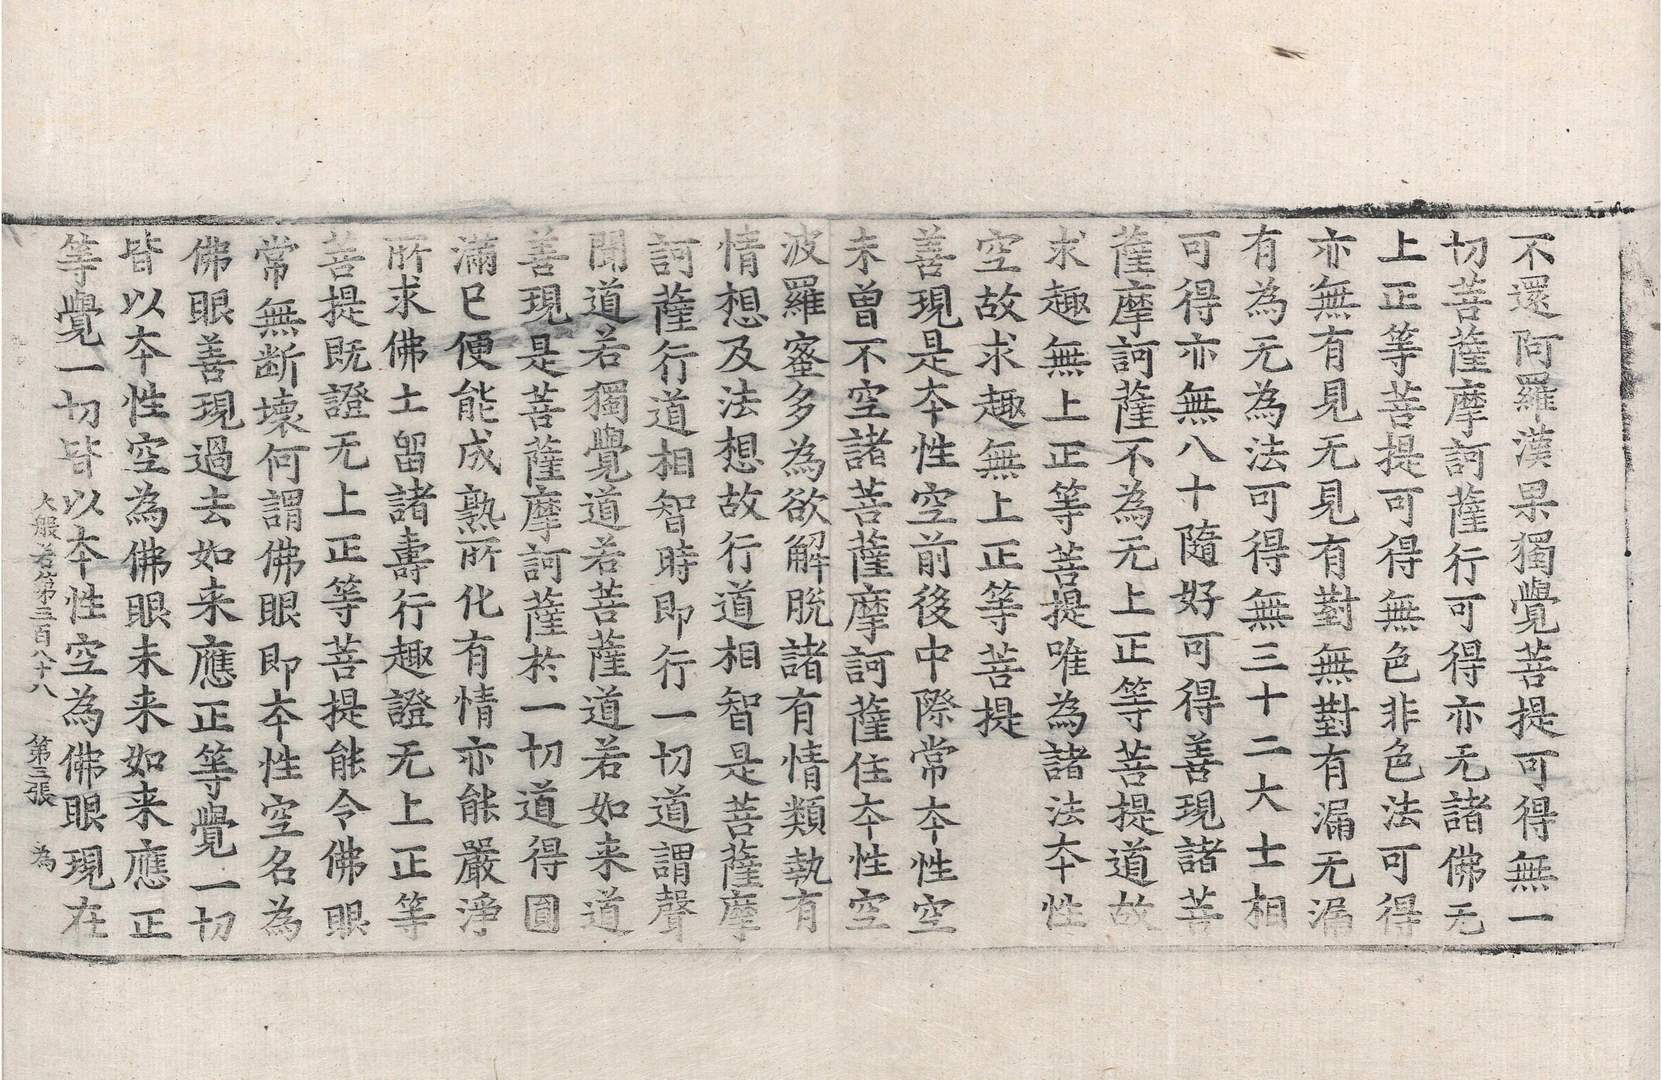 不還阿羅漢果獨覺菩提可得無一
切菩薩摩訶薩行可得亦无諸佛无
上正等菩提可得無色非色法可得
亦無有見无見有對無對有漏无漏
有為无為法可得無三十二大士相
可得亦無八十隨好可得善現諸菩
薩摩訶薩不為无上正等菩提道故
求趣無上正等菩提唯為諸法夲性
空故求趣無上正等菩提
善現是夲性空前後中際常夲性空
未曾不空諸菩薩摩訶薩住夲性空
波羅蜜多為欲解脫諸有情類執有
情想及法想故行道相智是菩薩摩
訶薩行道相智時即行一切道謂聲
聞道若獨覺道若菩薩道若如来道
善現是菩薩摩訶薩於一切道得圓
滿已便能成熟所化有情亦能嚴淨
所求佛土留諸壽行趣證无上正等
菩提既證无上正等菩提能令佛眼
常無断壞何謂佛眼即夲性空名為
佛眼善現過去如来應正等覺一切
皆以夲性空為佛眼未来如来應正
等覺一切皆以夲性空為佛眼現在
大般若第三百八十八 第三張 為